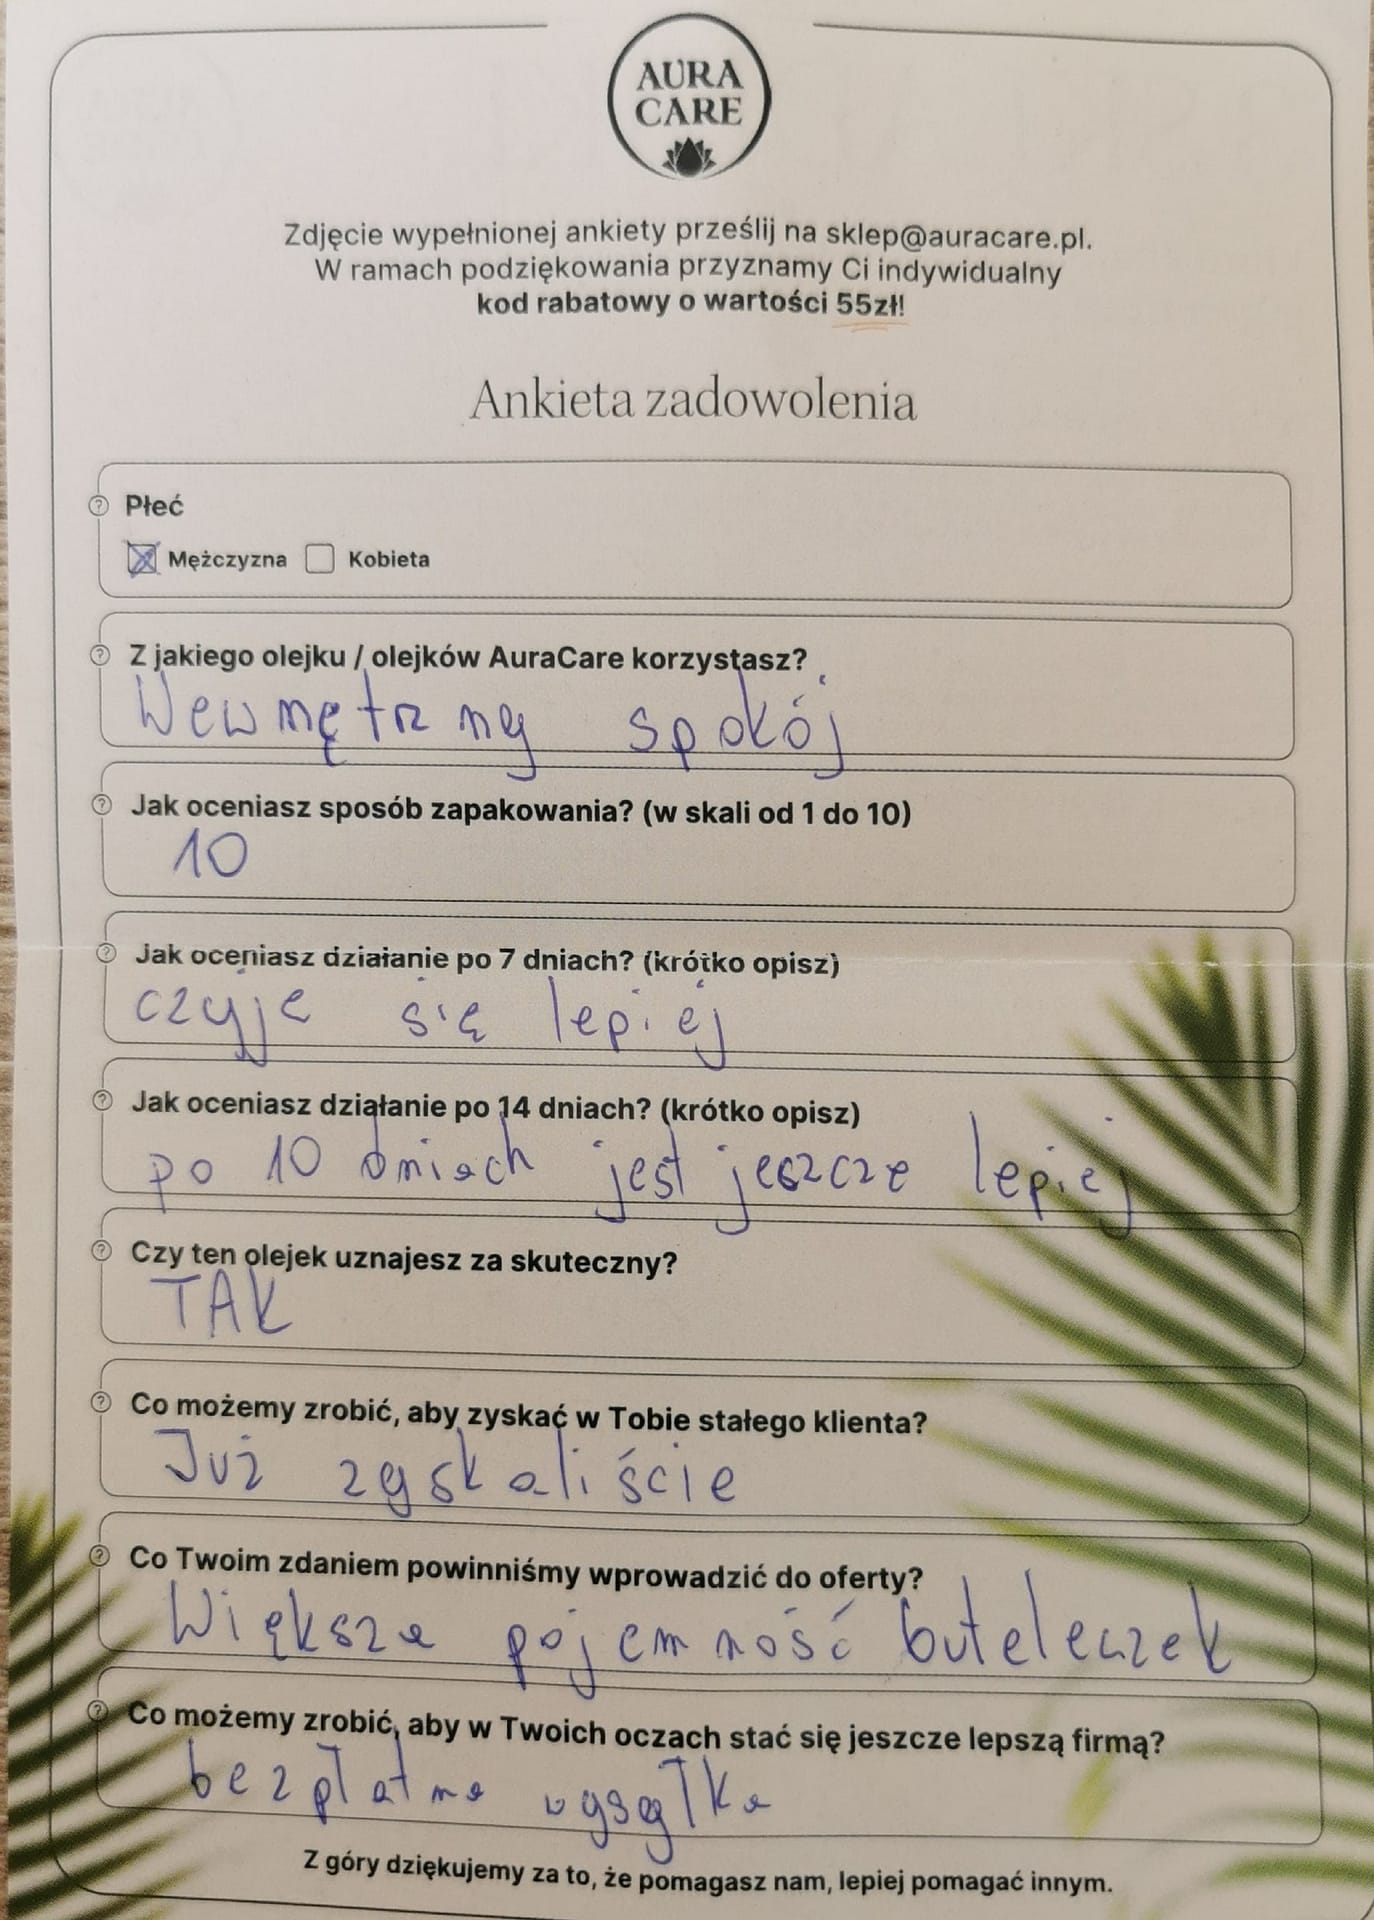 AURA
CARE
Zdjęcie wypełnionej ankiety prześlij na sklep@auracare.pl.
W ramach podziękowania przyznamy Ci indywidualny
kod rabatowy o wartości 55zł!
Ankieta zadowolenia
Płeć
Mężczyzna Kobieta
Z jakiego olejku / olejków AuraCare korzystasz?
Wewnętrzny spokój
Jak oceniasz sposób zapakowania? (w skali od 1 do 10)
10
Jak oceniasz działanie po 7 dniach? (krótko opisz)
czyję się lepiej
Jak oceniasz działanie po 14 dniach? (krótko opisz)
po 10 dniach jest jeszcze lepiej
Czy ten olejek uznajesz za skuteczny?
TAK
Co możemy zrobić, aby zyskać w Tobie stałego klienta?
Już zyskaliście
Co Twoim zdaniem powinniśmy wprowadzić do oferty?
Większa pojemność buteleczek
Co możemy zrobić, aby w Twoich oczach stać się jeszcze lepszą firmą?
bezpłatna wysyłka
Z góry dziękujemy za to, że pomagasz nam, lepiej pomagać innym.